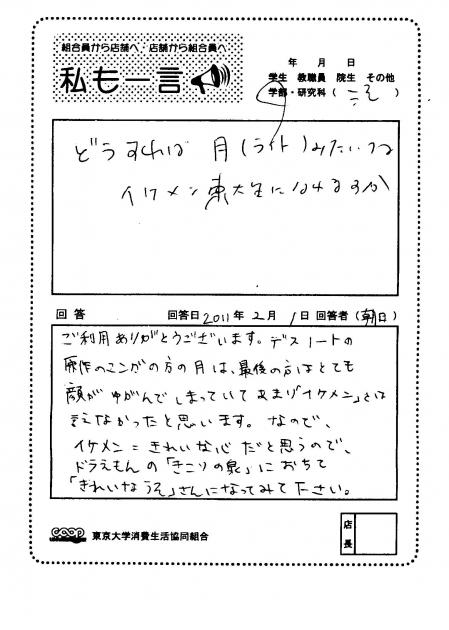 組合員から店舗へ 店舗から組合員へ
私も一言
年 月 日
学生 教職員 院生 その他
学部・研究科( )
どうすれば 月(ライト)みたいな
イケメン東大生になれますか
回答 回答日2011年2月1日 回答者(朝日)
ご利用ありがとうございます。デスノートの
原作のマンガの方の月は、最後の方はとても
顔がゆがんでしまっていてあまり「イケメン」とは
言えなかったと思います。なので、
イケメン=きれいな心だと思うので、
ドラえもんの「きこりの泉」におちて
「きれいな うそ」さんになってみて下さい。
coop 東京大学消費生活協同組合
店長